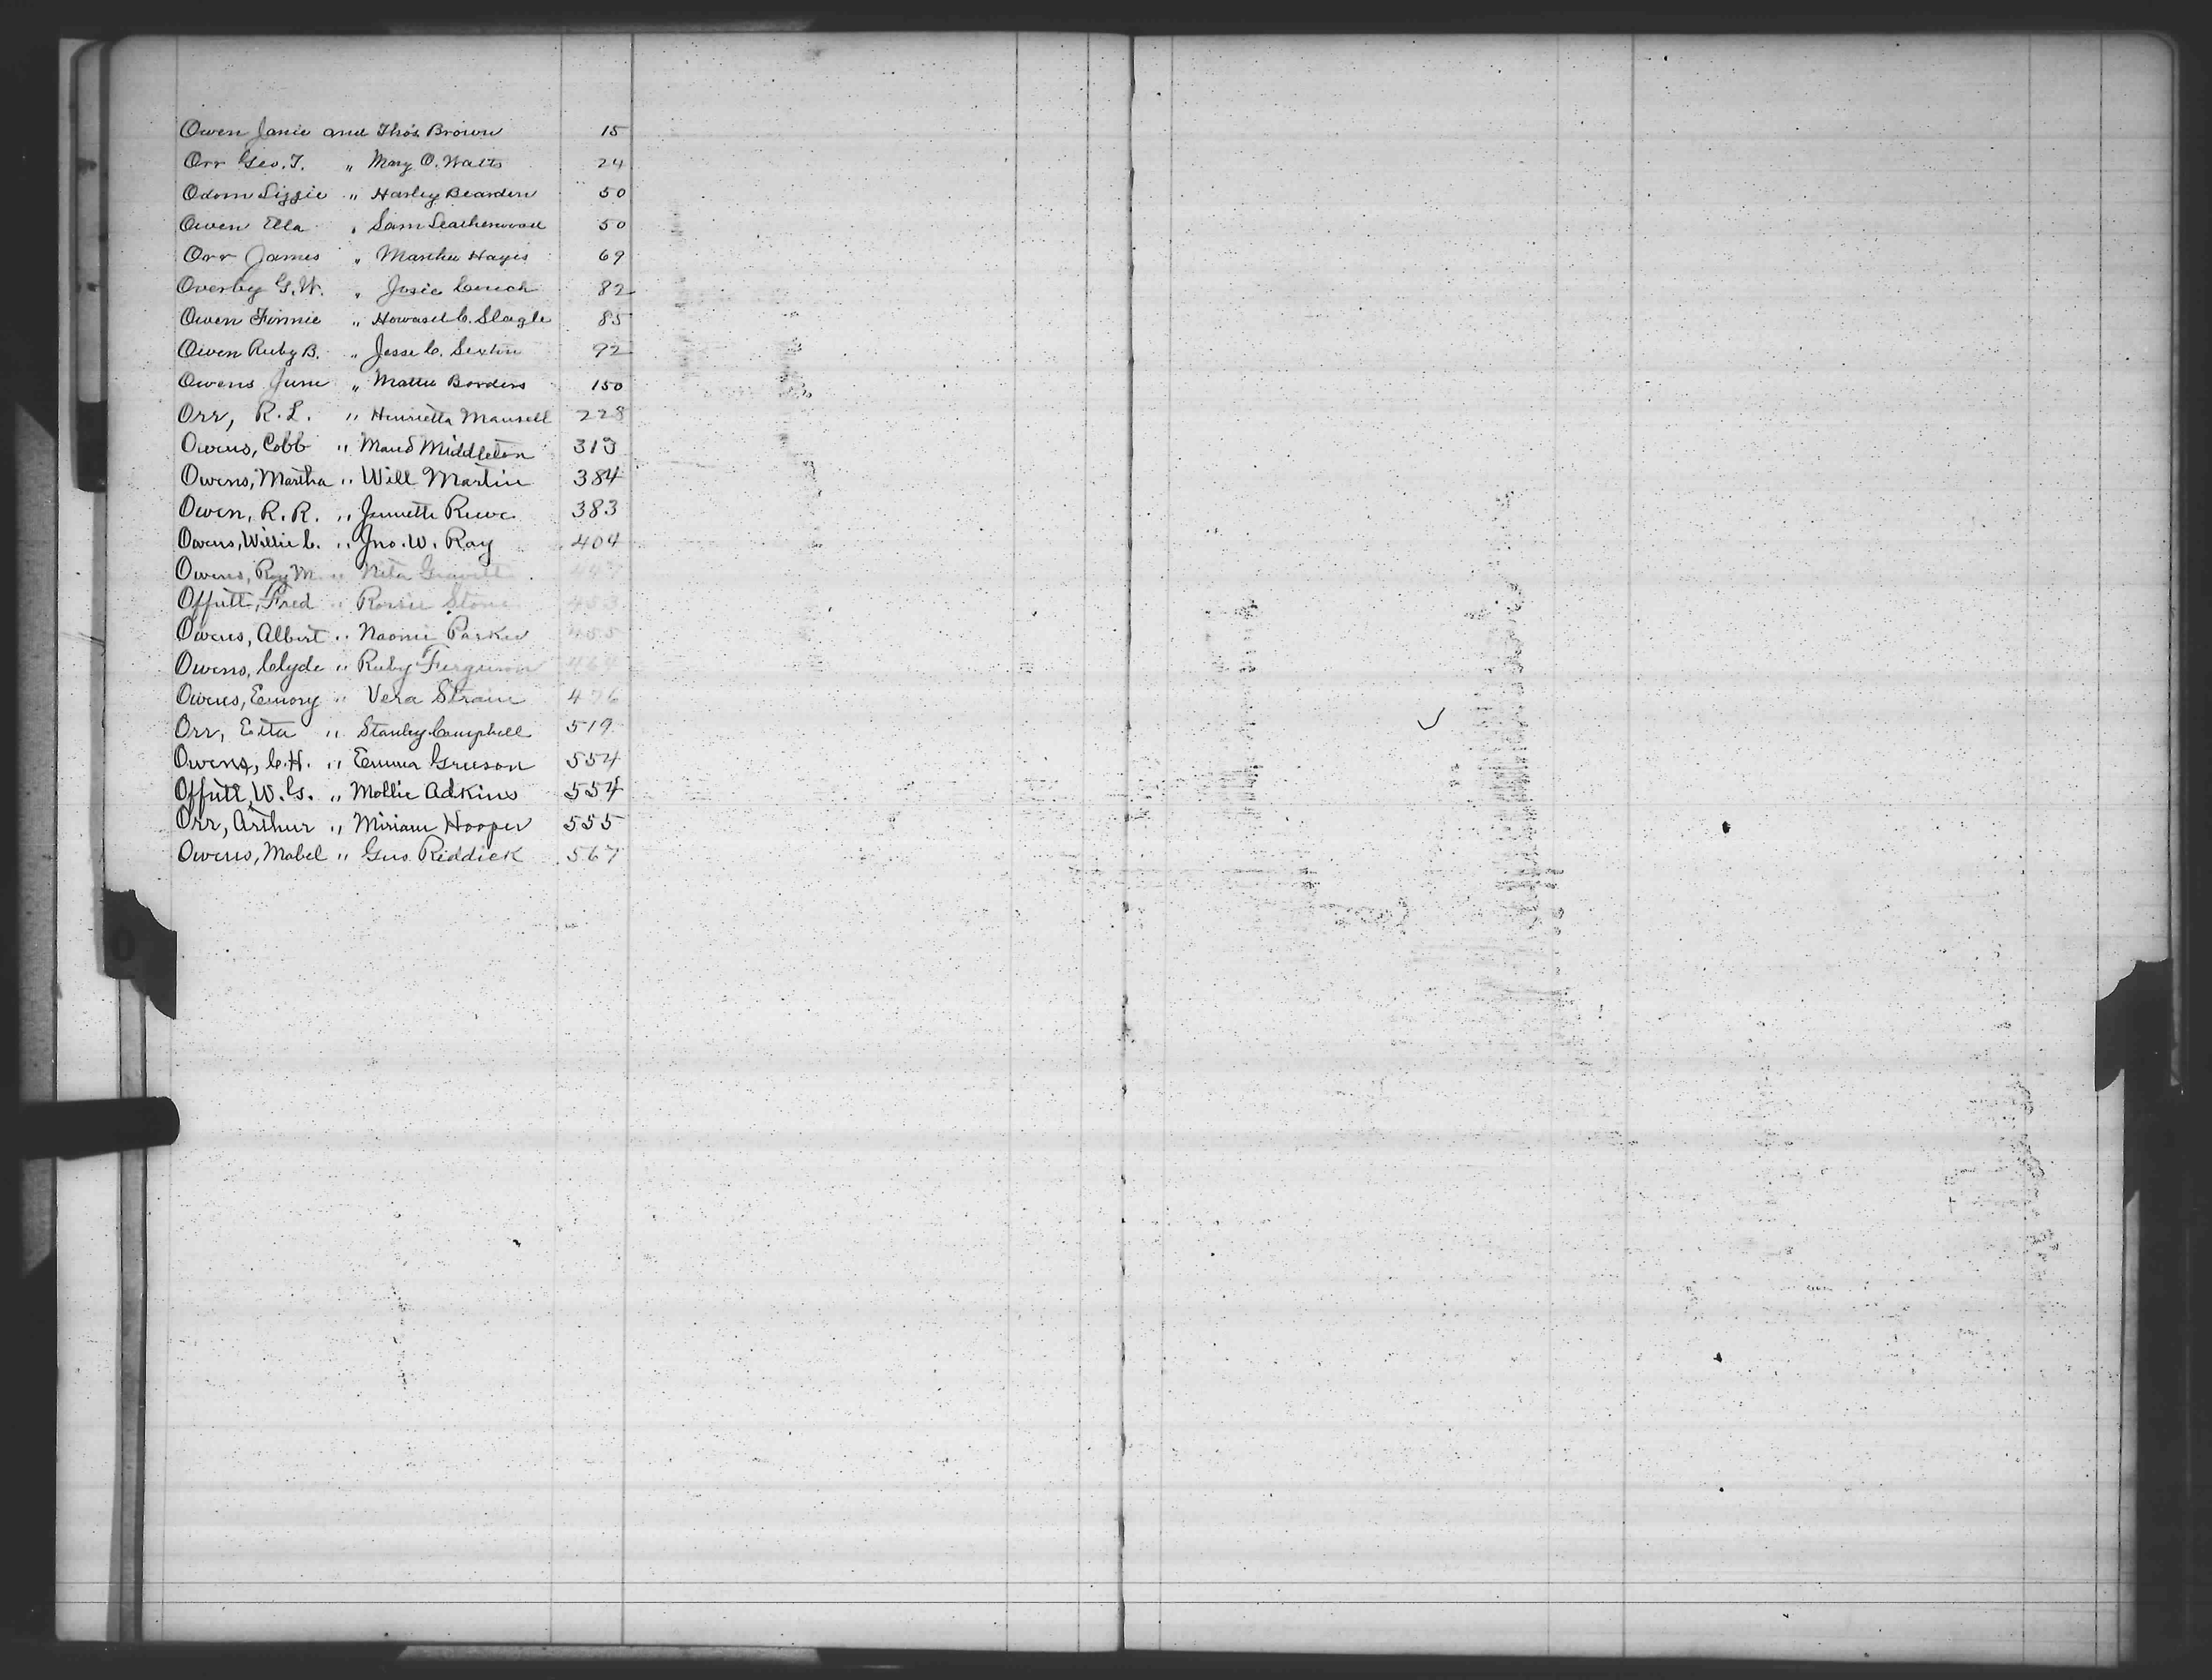 Owen Janie and Thos. Brown 15
Orr Geo. T. " Mary O. Watts 24
Odom Lizzie " Harley Bearden 50
Owen Ella " Sam Leatherwood 50
Orr James " Martha Hayes 69
Overby G. W. " Josie Couch 82
Owen Finnie " Howard C. Slagle 85
Owen Ruby B. " Jesse C. Sexton 92
Owens June " Mattie Borders 150
Orr, R. L. " Henrietta Mansell 228
Owens, Cobb " Maud Middleton 313
Owens, Martha " Will Martin 384
Owen, R. R. " Jennette 383
Owens, Willie C. " Jno. W. Ray 404
Owens, Roy M. " Nita Gravitt
Offutt, Fred " Rosie Stone 453
Owens, Albert " Naomi Parker 455
Owens, Clyde " Ruby Ferguson 464
Owens, Emory " Vera Strain 476
Orr, Etta " Stanley Campbell 519
Owens, C. H. " Emma Greeson 554
Offutt, W. G. " Mollie Adkins 554
Orr, Arthur " Miriam Hooper 555
Owens, Mabel " Gus Riddick 567
O